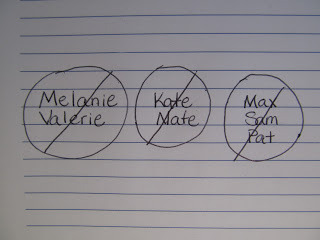 Melanie
Valerie
Kate
Nate
Max
Sam
Pat